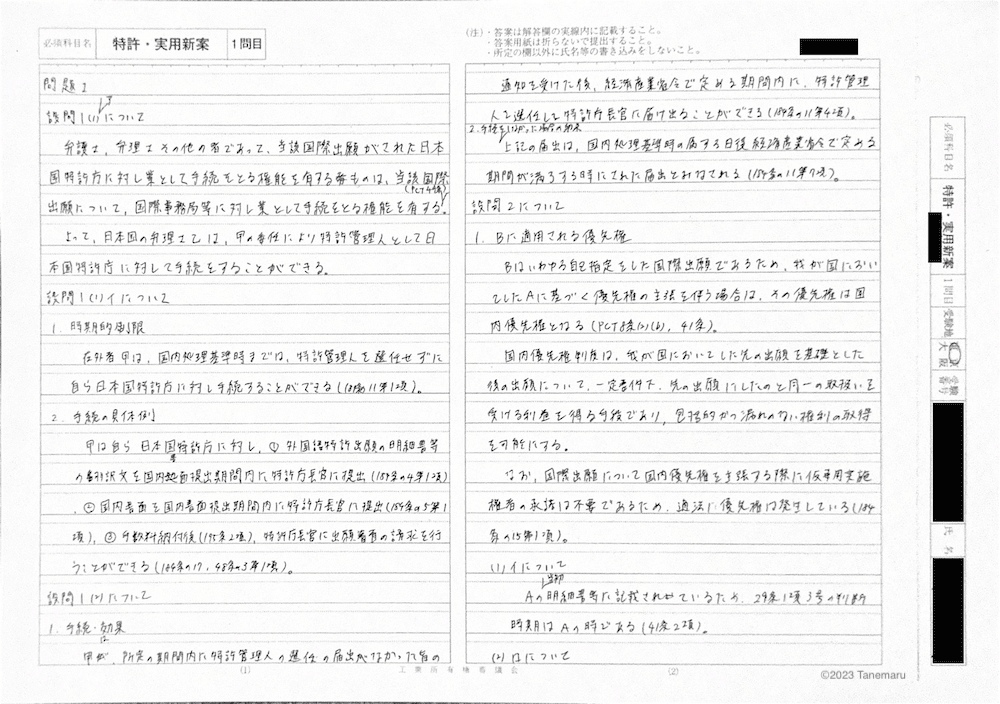 必須科目名 特許・実用新案 1問目
(注)・答案は解答欄の実線内に記載すること。
・答案用紙は折らないで提出すること。
・所定の欄以外に氏名等の書き込みをしないこと。
問題I
設問1(1)アについて
弁護士、弁理士その他の者であって、当該国際出願がされた日本
国特許庁に対し業として手続をとる権能を有するものは、当該国際
出願について、国際事務局等に対し業として手続をとる権能を有する(PCT49条)。
よって、日本国の弁理士乙は、甲の委任により特許管理人として日
本国特許庁に対して手続をすることができる。
設問1(1)イについて
1. 時期的制限
在外者甲は、国内処理基準時までは、特許管理人を選任せずに
自ら日本国特許庁に対し手続することができる(184条の11第1項)。
2. 手続の具体例
甲は自ら日本国特許庁に対し、①外国語特許出願の明細書等
の翻訳文を国内書面提出期間内に特許庁長官に提出(184条の4第1項)
、②国内書面を国内書面提出期間内に特許庁長官に提出(184条の5第1
項)、③手数料納付後(195条2項)、特許庁長官に出願審査の請求を行
うことができる(184条の17、48条の3第1項)。
設問1(2)について
1. 手続・効果
甲は、所定の期間内に特許管理人の選任の届出がなかった旨の
(1)
工業所有権審議会
通知を受けた後、経済産業省令で定める期間内に、特許管理
人を選任して特許庁長官に届け出ることができる(184条の11第4項)。
2. 手続をしなかった場合の効果
上記の届出は、国内処理基準時の属する日後経済産業省令で定める
期間が満了する時にされた届出とみなされる(184条の11第7項)。
設問2について
1. Bに適用される優先権
Bはいわゆる自己指定をした国際出願であるため、我が国におい
てしたAに基づく優先権の主張を伴う場合は、その優先権は国
内優先権となる(PCT8条(2)(b)、41条)。
国内優先権制度は、我が国においてした先の出願を基礎とした
後の出願について、一定要件下、先の出願にしたのと同一の取扱いを
受ける利益を得る手段であり、包括的かつ漏れのない権利の取得
を可能にする。
なお、国際出願について国内優先権を主張する際に仮専用実施
権者の承諾は不要であるため、適法に優先権は発生している(184
条の15第1項)。
(1)イについて
Aの当初明細書等に記載されているため、29条1項3号の判断
時期はAの時である(41条2項)。
(2)ロについて
(2)
必須科目名 特許・実用新案 1問目 受験地 東京 大阪 受験番号
氏名
©2023 Tanemaru